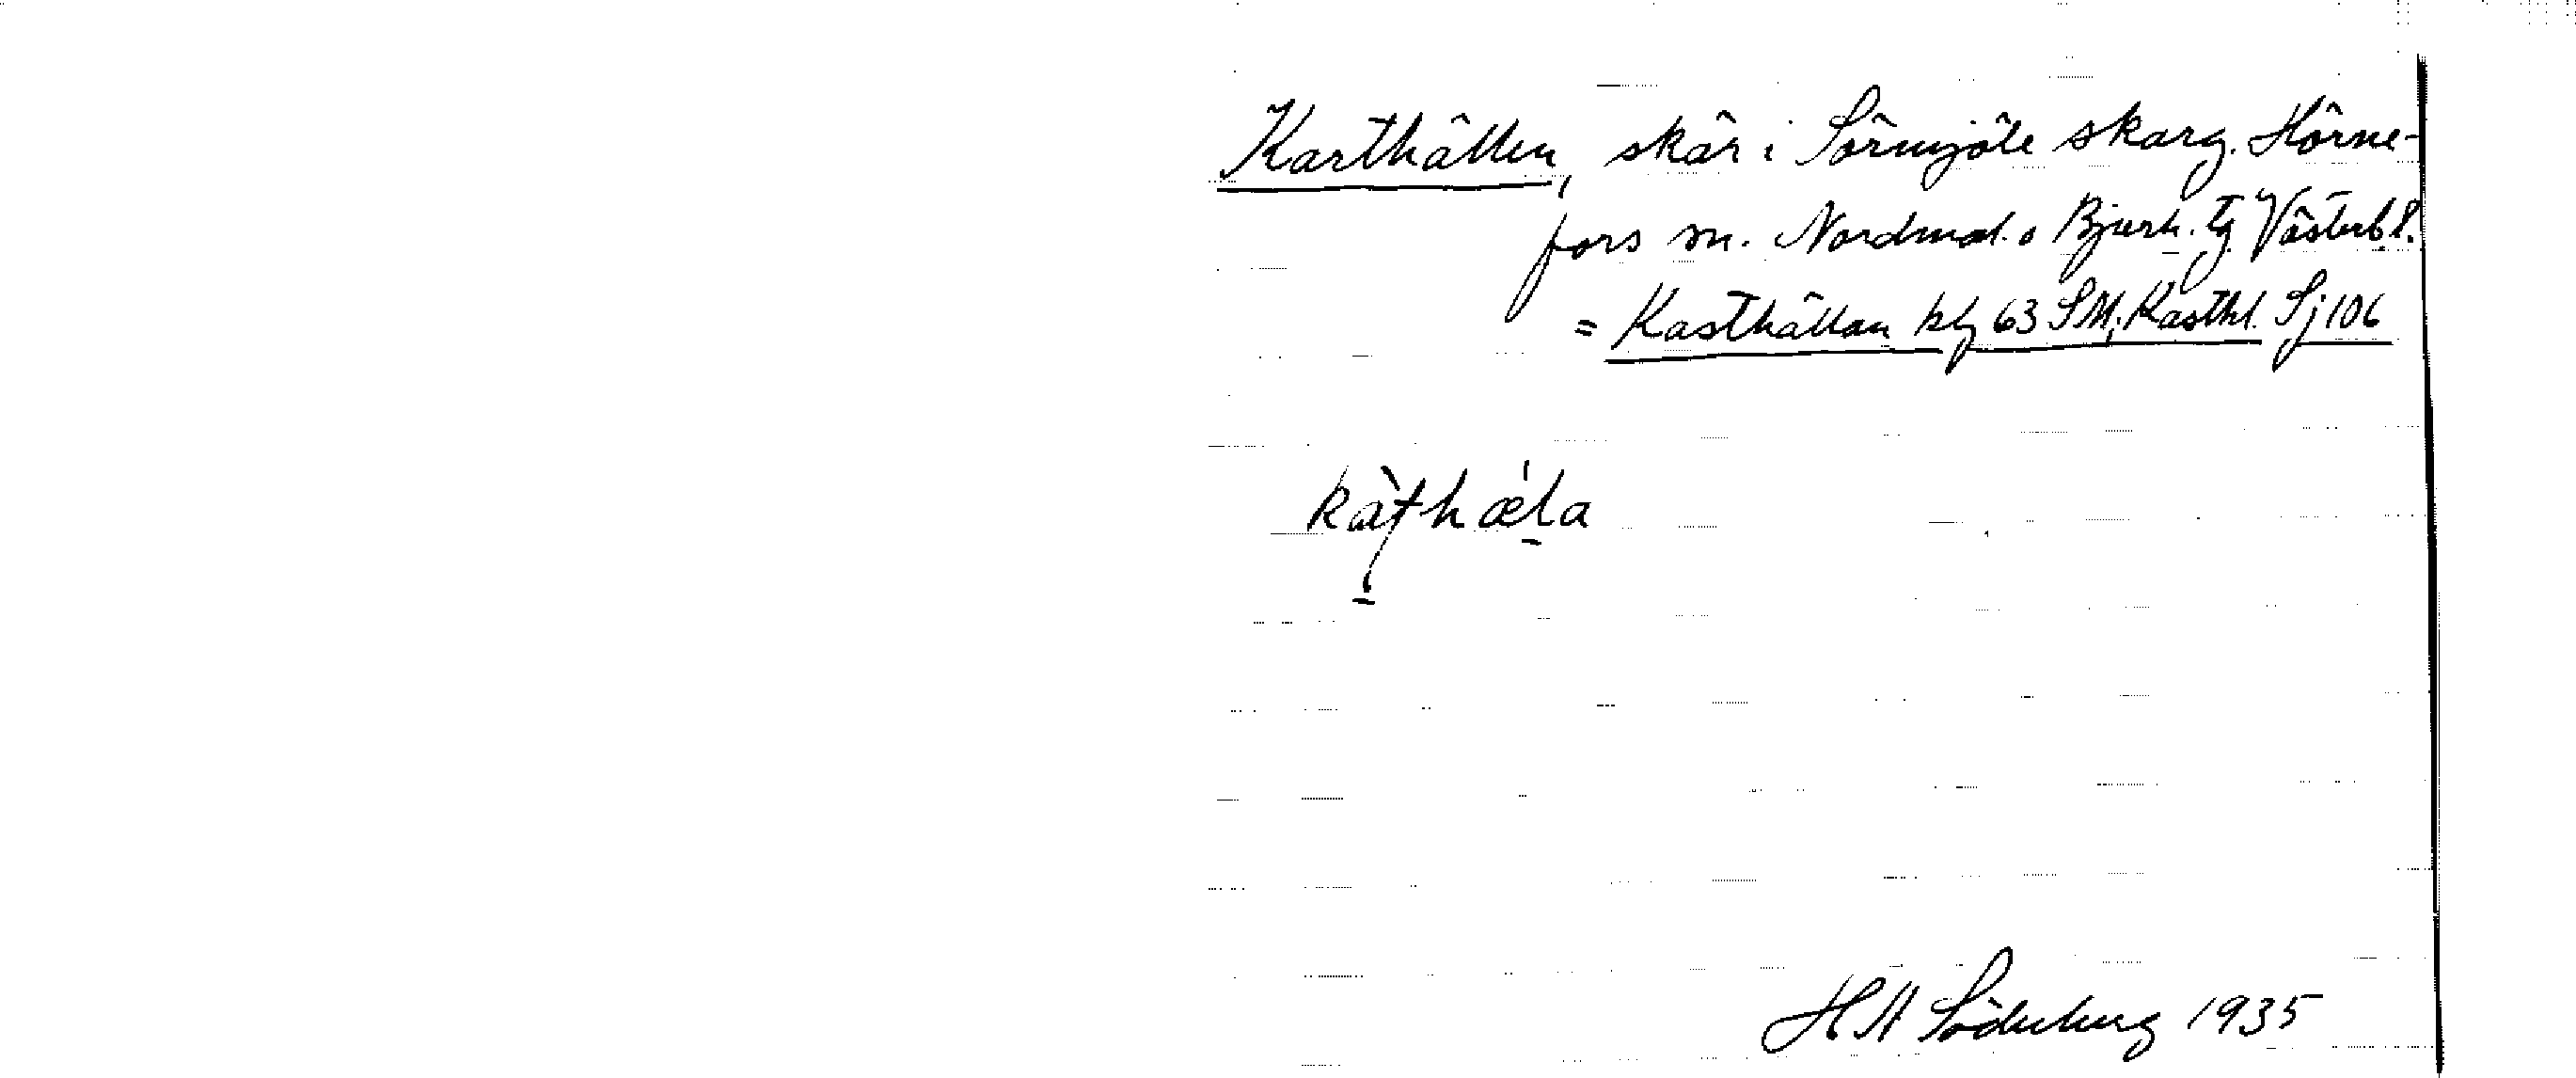 Karthällen, skär i Sörmjöle skärg. Hörne-
fors sn. Nordmal. o Bjurh. tg Västerb.l.
= Kasthällan kbl 63 SM; Kasthl. Sj 106
kat̀hæ̀la
H A Söderberg 1935